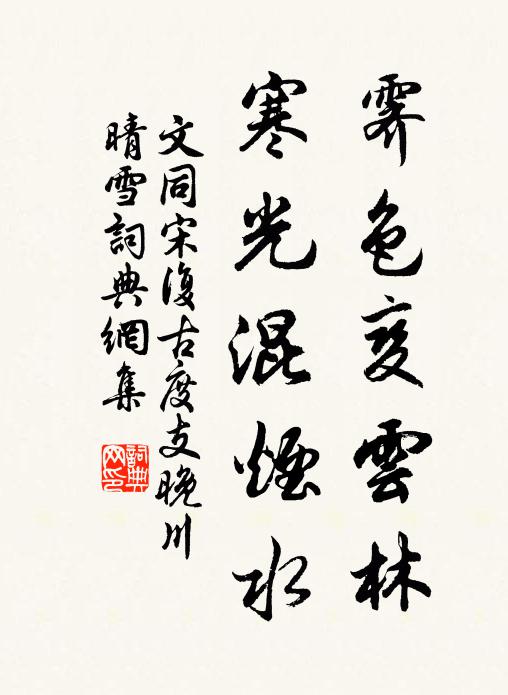 霽色變雲林
寒光混煙水
文同宋復古度支晚川
晴雪詞典網集
詞典網印